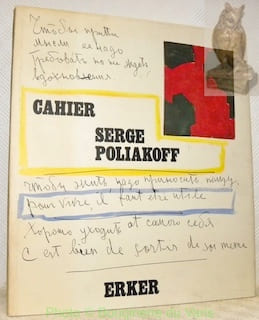 Чтобы притти
мысли ее надо
требовать но не ждать
вдохновения.
CAHIER
SERGE
POLIAKOFF
Чтобы жить надо приносить пользу
pour vivre, il faut être utile
Хорошо уходить от самого себя
C'est bien de sortir de soi même
ERKER